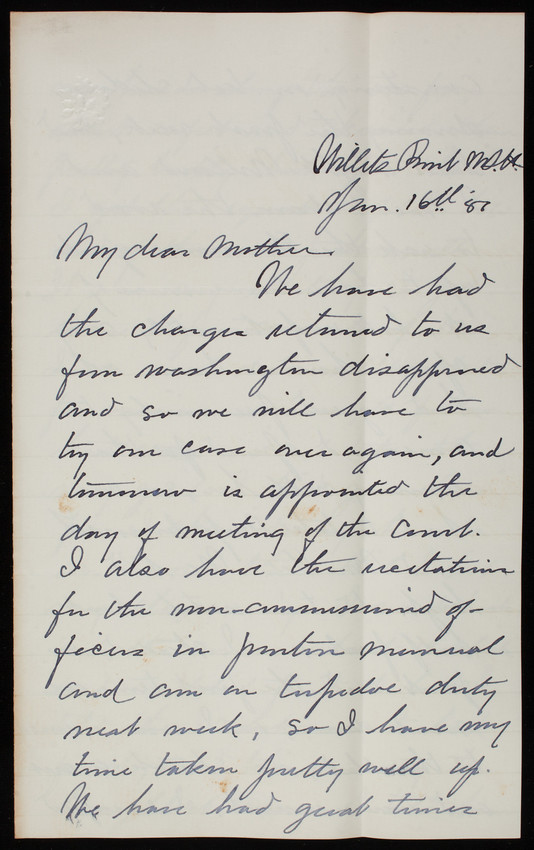 Willets Point N.Y.
Jan. 16th '81
My dear Mother.
We have had
the charges returned to us
from Washington disapproved
and so we will have to
try our case over again, and
tomorrow is appointed the
day of meeting of the Court.
I also have the recitations
for the non-commissioned of-
ficers in ponton manual
and am on torpedoe duty
next week, so I have my
time taken pretty well up.
We have had great times